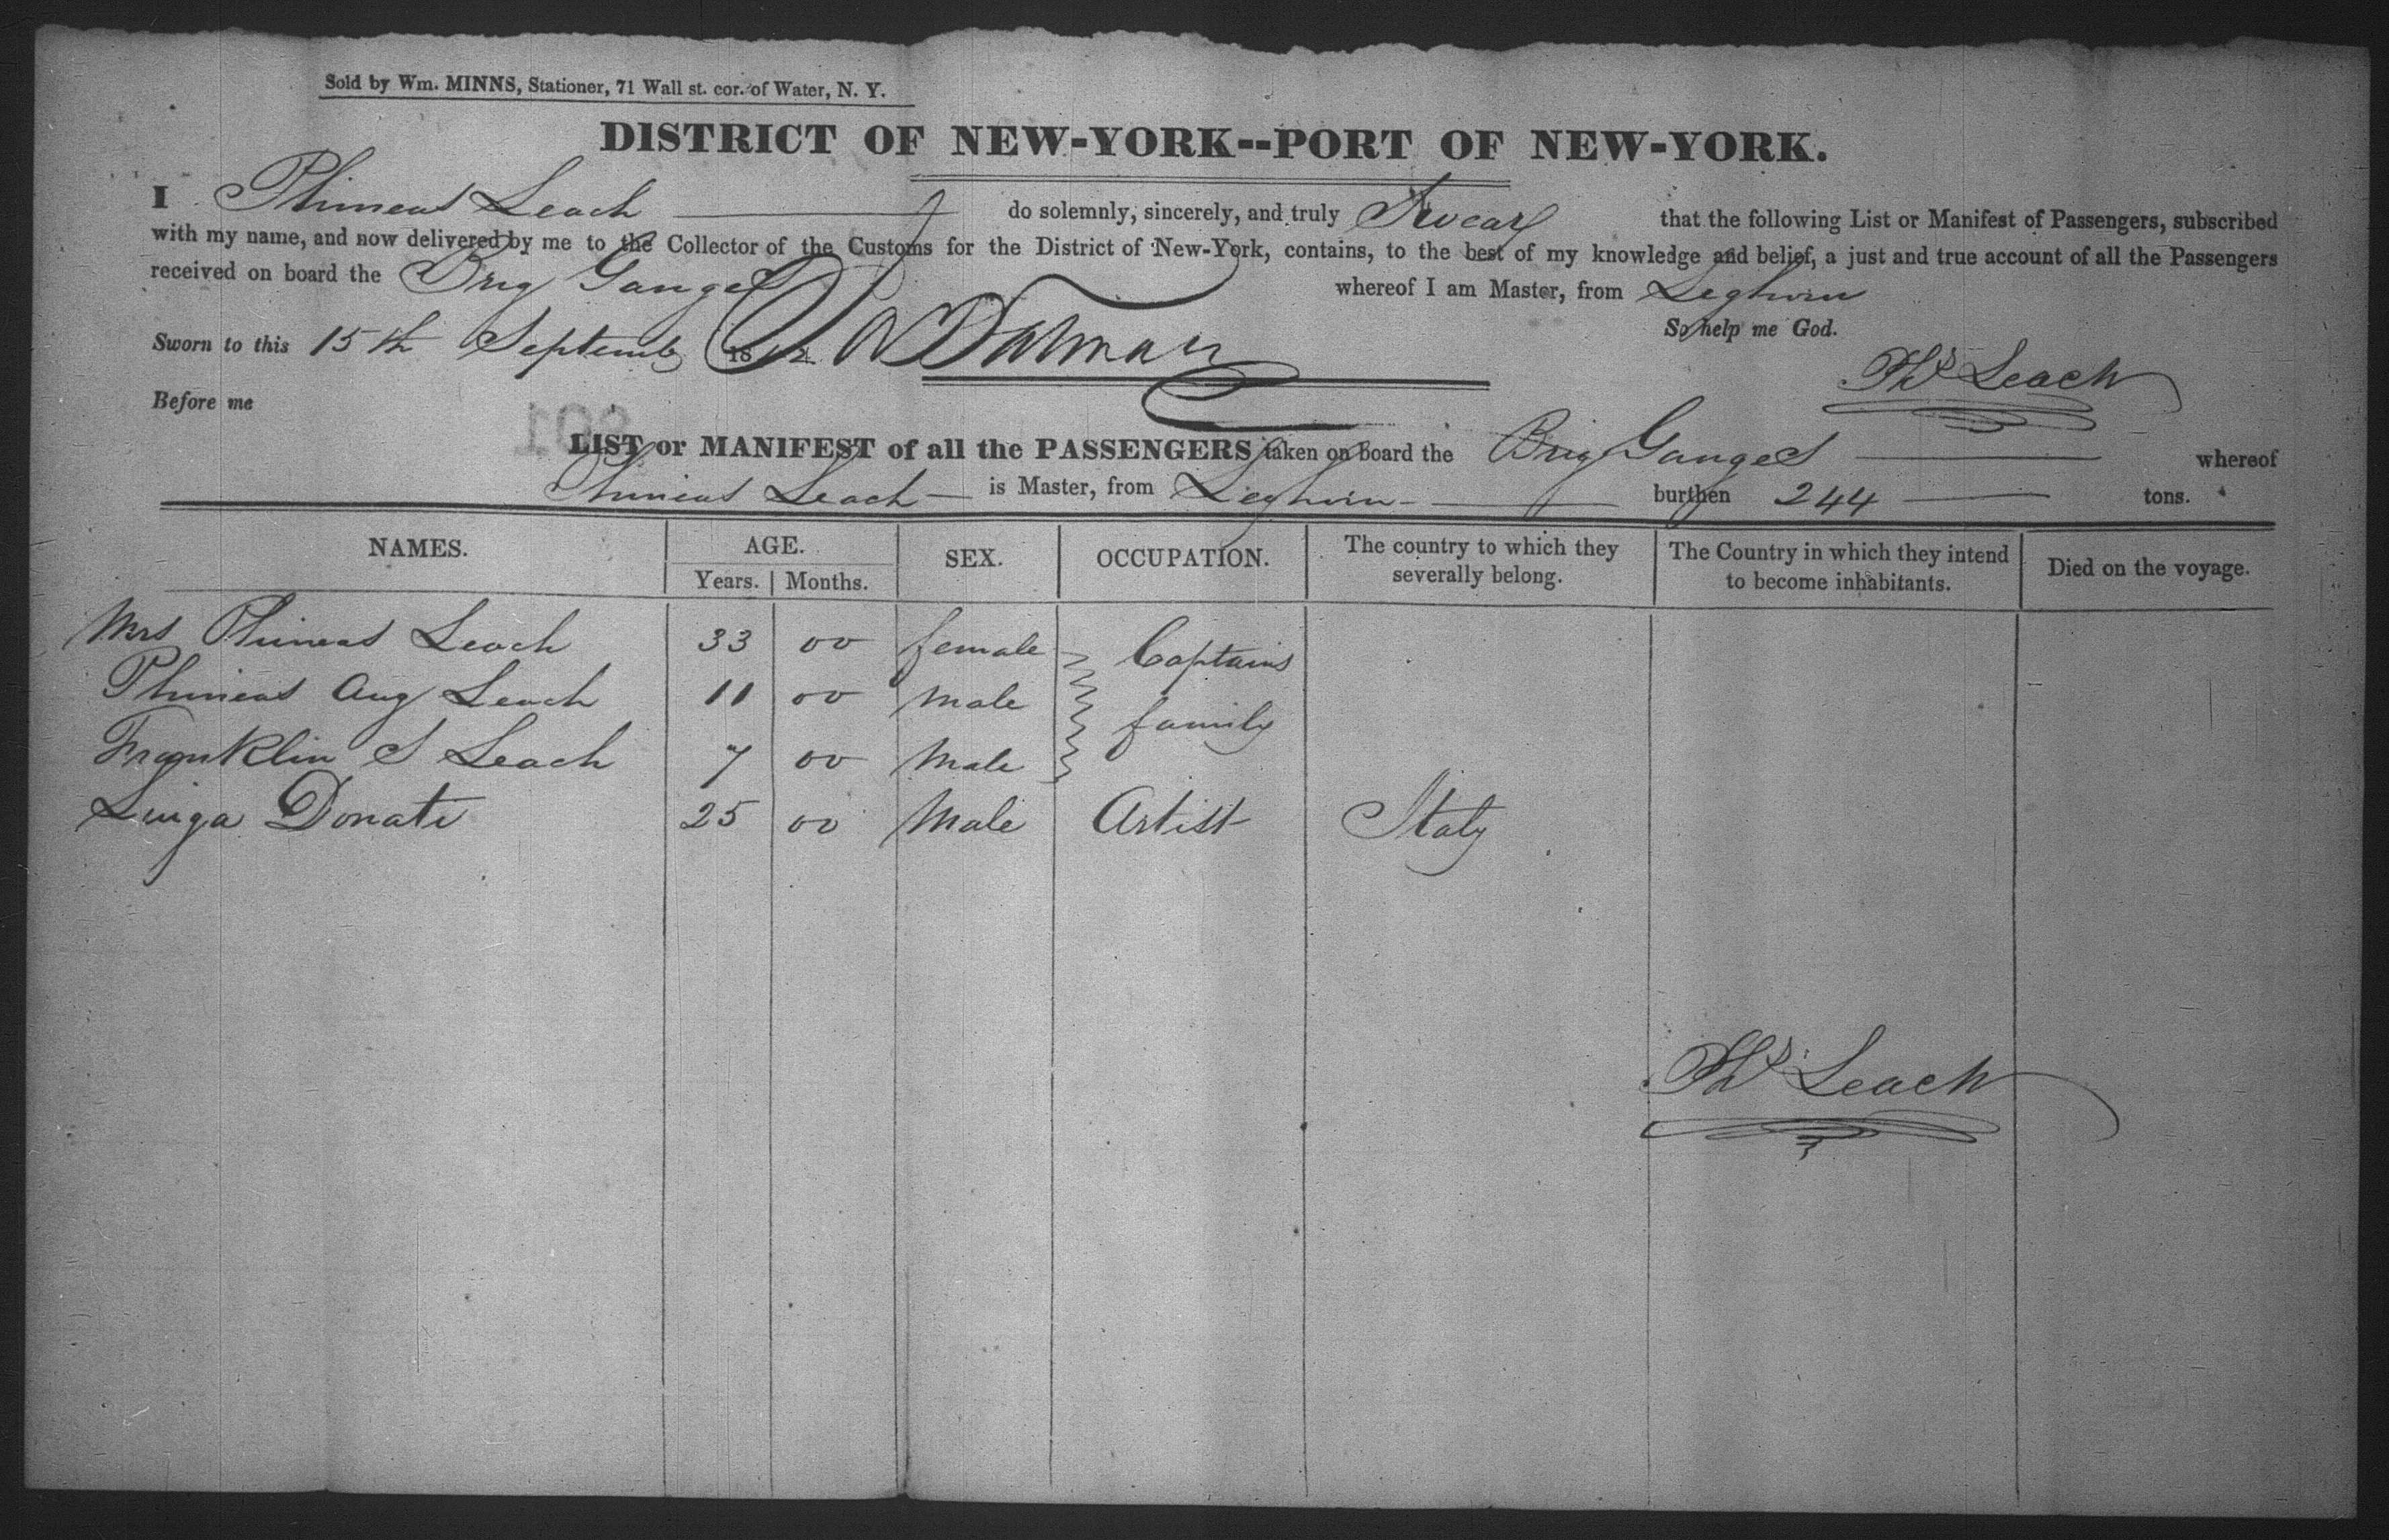 Sold by Wm. MINNS, Stationer, 71 Wall st. cor. of Water, N. Y.
DISTRICT OF NEW-YORK--PORT OF NEW-YORK.
I Phineas Leach do solemnly, sincerely, and truly Swear that the following List or Manifest of Passengers, subscribed
with my name, and now delivered by me to the Collector of the Customs for the District of New-York, contains, to the best of my knowledge and belief, a just and true account of all the Passengers
received on board the Brig Ganges whereof I am Master, from Leghorn
So help me God.
Sworn to this 15th Septemb 1842
Phs Leach
Before me
LIST or MANIFEST of all the PASSENGERS taken on board the Brig Ganges whereof
Phineas Leach is Master, from Leghorn burthen 244 tons.
NAMES. AGE. Years. Months. SEX. OCCUPATION. The country to which they severally belong. The Country in which they intend to become inhabitants. Died on the voyage.
Mrs Phineas Leach 33 00 female Captains
Phineas Aug Leach 11 00 Male family
Franklin S Leach 7 00 Male
Luiga Donate 25 00 Male Artist Italy
Phs Leach